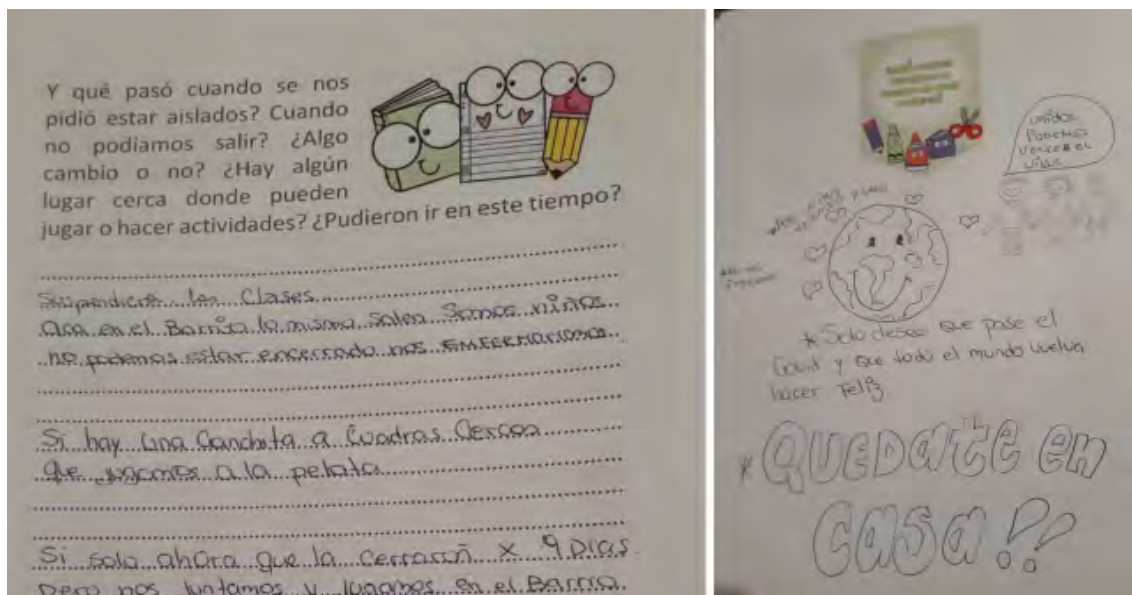 Y qué pasó cuando se nos
pidió estar aislados? Cuando
no podíamos salir? ¿Algo
cambio o no? ¿Hay algún
lugar cerca donde pueden
jugar o hacer actividades? ¿Pudieron ir en este tiempo?
las Clases
Aca en el Barrio lo mismo salen Somos niños
no podemos estar encerrado nos
Si hay una Canchita a Cuadras Cercas
que jugamos a la pelota
Si solo ahora que la Cerraroñ x 9 Dias
pero nos juntamos y jugamos en el Barrio.
unidos
Podemos
Vencer el
virus
* Solo deseo que pase el
Covid y que todo el mundo vuelva
hacer Feliz
* QUEDATE EN
CASA!!